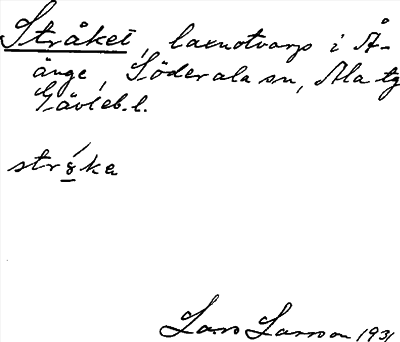 Stråket, laxnotvarp i Å-
änge, Söderala sn, Ala tg
Gävleb. l.
strǻka
Lars Larsson 1931